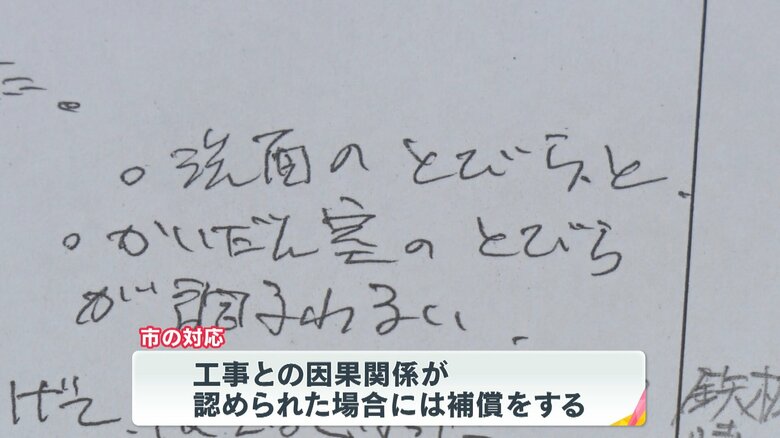 た。
。洗面のとびらと
。かいだん室のとびら
が調子わるい
市の対応
工事との因果関係が
認められた場合には補償をする
げて
鉄材